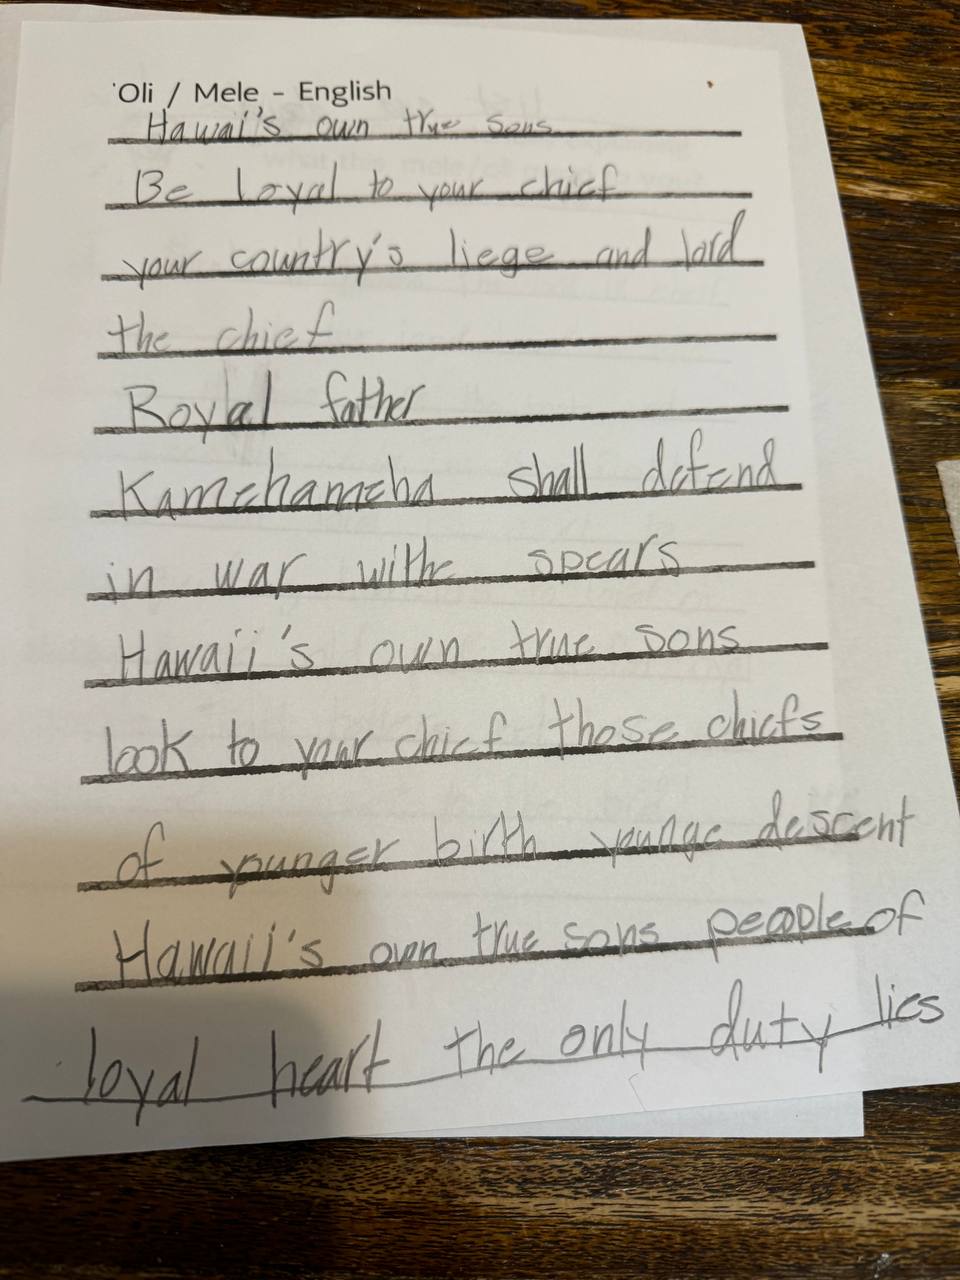 'Oli / Mele - English
Hawai's own true sons
Be loyal to your chief
your country's liege and lord
the chief
Royal father
Kamehameha shall defend
in war withe spears
Hawaii's own true sons
look to your chief those chiefs
of younger birth younge descent
Hawaii's own true sons people of
loyal heart the only duty lies